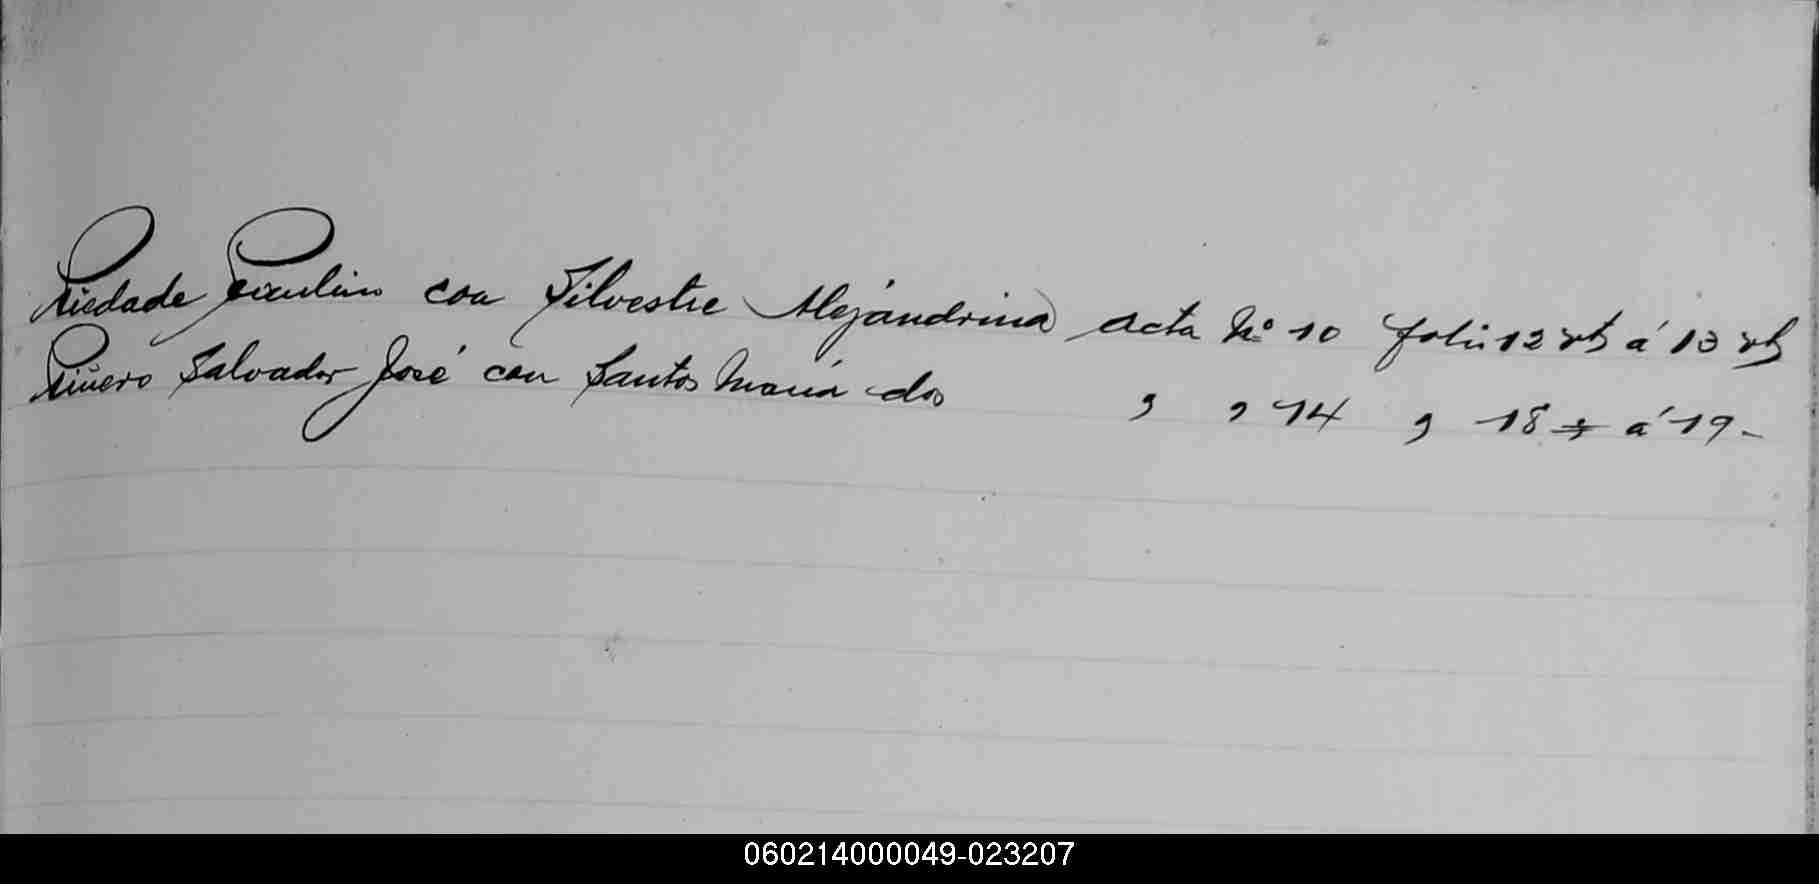 Piedade Paulino con Silvestre Alejandrina acta Nº 10 folio 12 vto á 13 vto
Piñero Salvador José con Santos María dos , , 14 , 18 á 19-
060214000049-023207